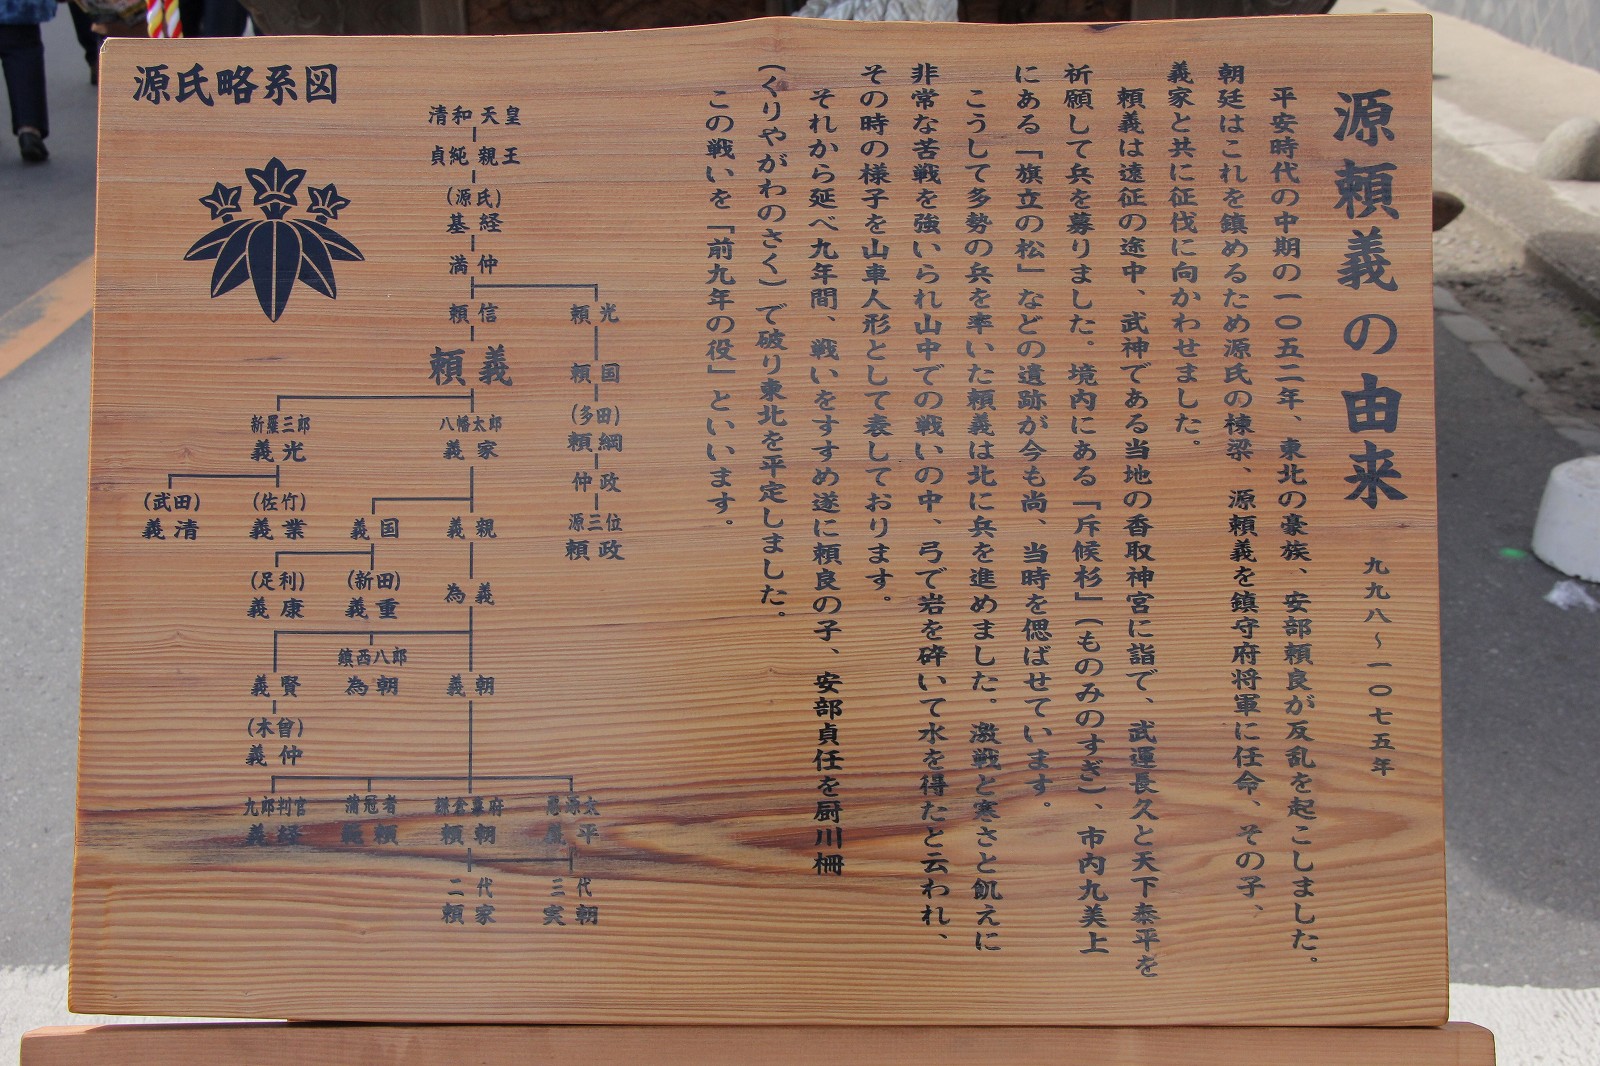 源頼義の由来
九九八〜一〇七五年
平安時代の中期の一〇五二年、東北の豪族、安部頼良が反乱を起こしました。
朝廷はこれを鎮めるため源氏の棟梁、源頼義を鎮守府将軍に任命、その子、
義家と共に征伐に向かわせました。
頼義は遠征の途中、武神である当地の香取神宮に詣で、武運長久と天下泰平を
祈願して兵を募りました。境内にある「斥候杉」(ものみのすぎ)、市内九美上
にある「旗立の松」などの遺跡が今も尚、当時を偲ばせています。
こうして多勢の兵を率いた頼義は北に兵を進めました。激戦と寒さと飢えに
非常な苦戦を強いられ山中での戦いの中、弓で岩を砕いて水を得たと云われ、
その時の様子を山車人形として表しております。
それから延べ九年間、戦いをすすめ遂に頼良の子、安部貞任を厨川柵
(くりやがわのさく)で破り東北を平定しました。
この戦いを「前九年の役」といいます。
源氏略系図
清和天皇
貞純親王
(源氏)
基経
満仲
頼信
頼光
頼義
頼国
(多田)
頼綱
仲政
源三位
頼政
新羅三郎
義光
八幡太郎
義家
(武田)
義清
(佐竹)
義業
義国
義親
(足利)
義康
(新田)
義重
為義
鎮西八郎
為朝
義賢
義朝
(木曾)
義仲
九郎判官
義経
蒲冠者
範頼
鎌倉幕府
頼朝
悪源太
義平
二代
頼家
三代
実朝